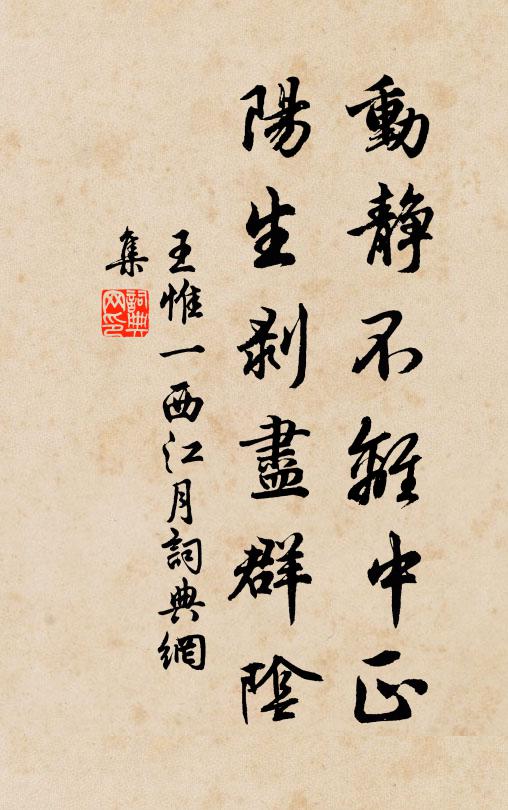 動靜不離中正
陽生剥盡群陰
王惟一西江月詞典網
集
詞典網印